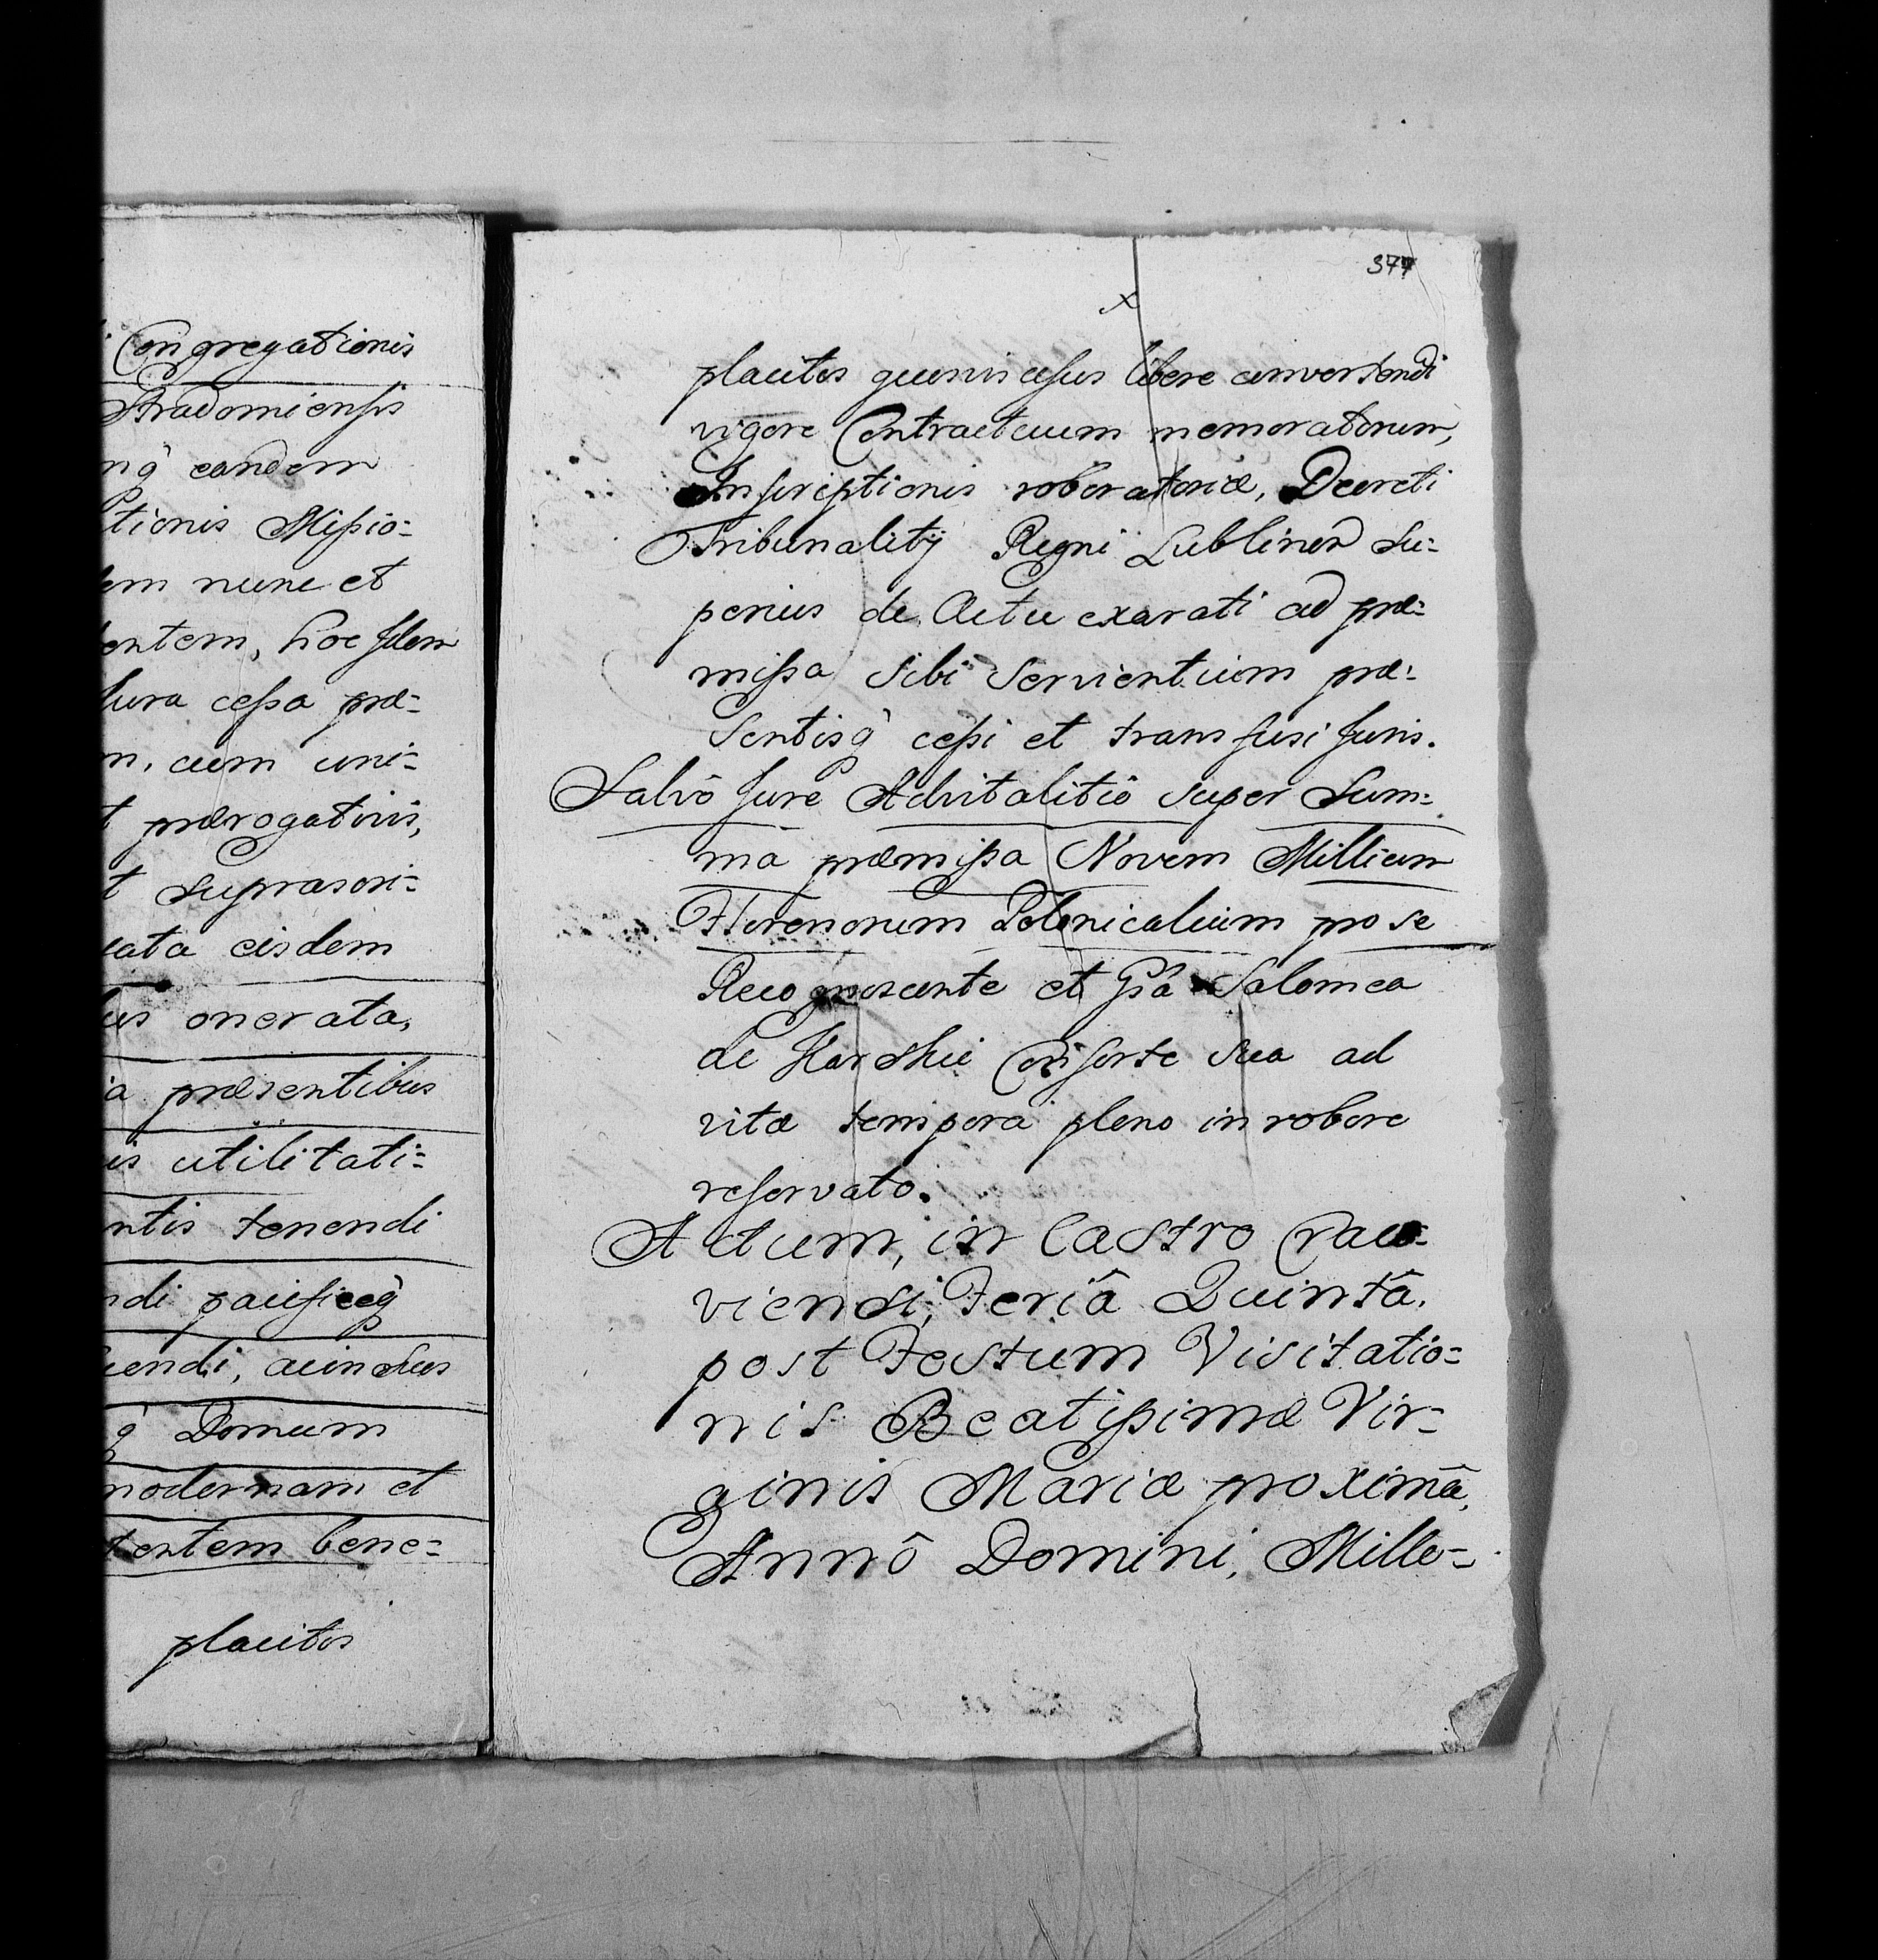 Congregationis
Stradomiensis
nq̀ eandem
tionis Missio=
dem nunc et
entem, hoc idem
Iura cessa præ=
m, cum uni=
t prærogativis,
t suprascri=
cata eisdem
us onerata,
ia præsentibus
is utilitati=
ntis tenendi
ndi pacificeq̀
uendi, ac in usus
q̀ Domum
modernam et
tentem bene=
placitos
377
x
placitos quosvis usus libere convertendi
vigore Contractuum memoratorum,
Inscriptionis roboratoriæ, Decreti
Tribunalitÿ Regni Lublinen su=
perius de Actu exarati ad præ=
missa sibi servientium præ=
sentisq̀ cessi et transfusi Juris.
Salvô Jure Advitalitiô super Sum=
mâ præmissa Novem Millium
Florenorum Polonicalium pro se
Recognoscente et Gsâ Salomea
de Harskie Consorte sua ad
vitæ tempora pleno in robore
reservato.
Actum, in Castro Craco=
viensi, Feriâ Quintâ,
post Festum Visitatio=
nis Beatissimæ Vir=
ginis Mariæ proximâ,
Annô Domini, Mille=